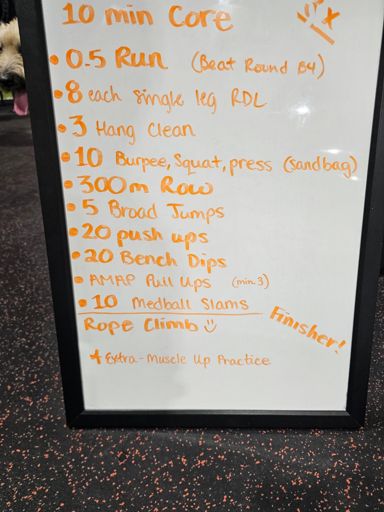 10 min Core
• 0.5 Run (Beat Round B4)
• 8 each single leg RDL
• 3 Hang Clean
• 10 Burpee, Squat, press (sandbag)
• 300m Row
• 5 Broad Jumps
• 20 push ups
• 20 Bench Dips
• AMAP Pull Ups (min 3)
• 10 Medball Slams
Rope Climb Finisher!
+ Extra - Muscle Up Practice